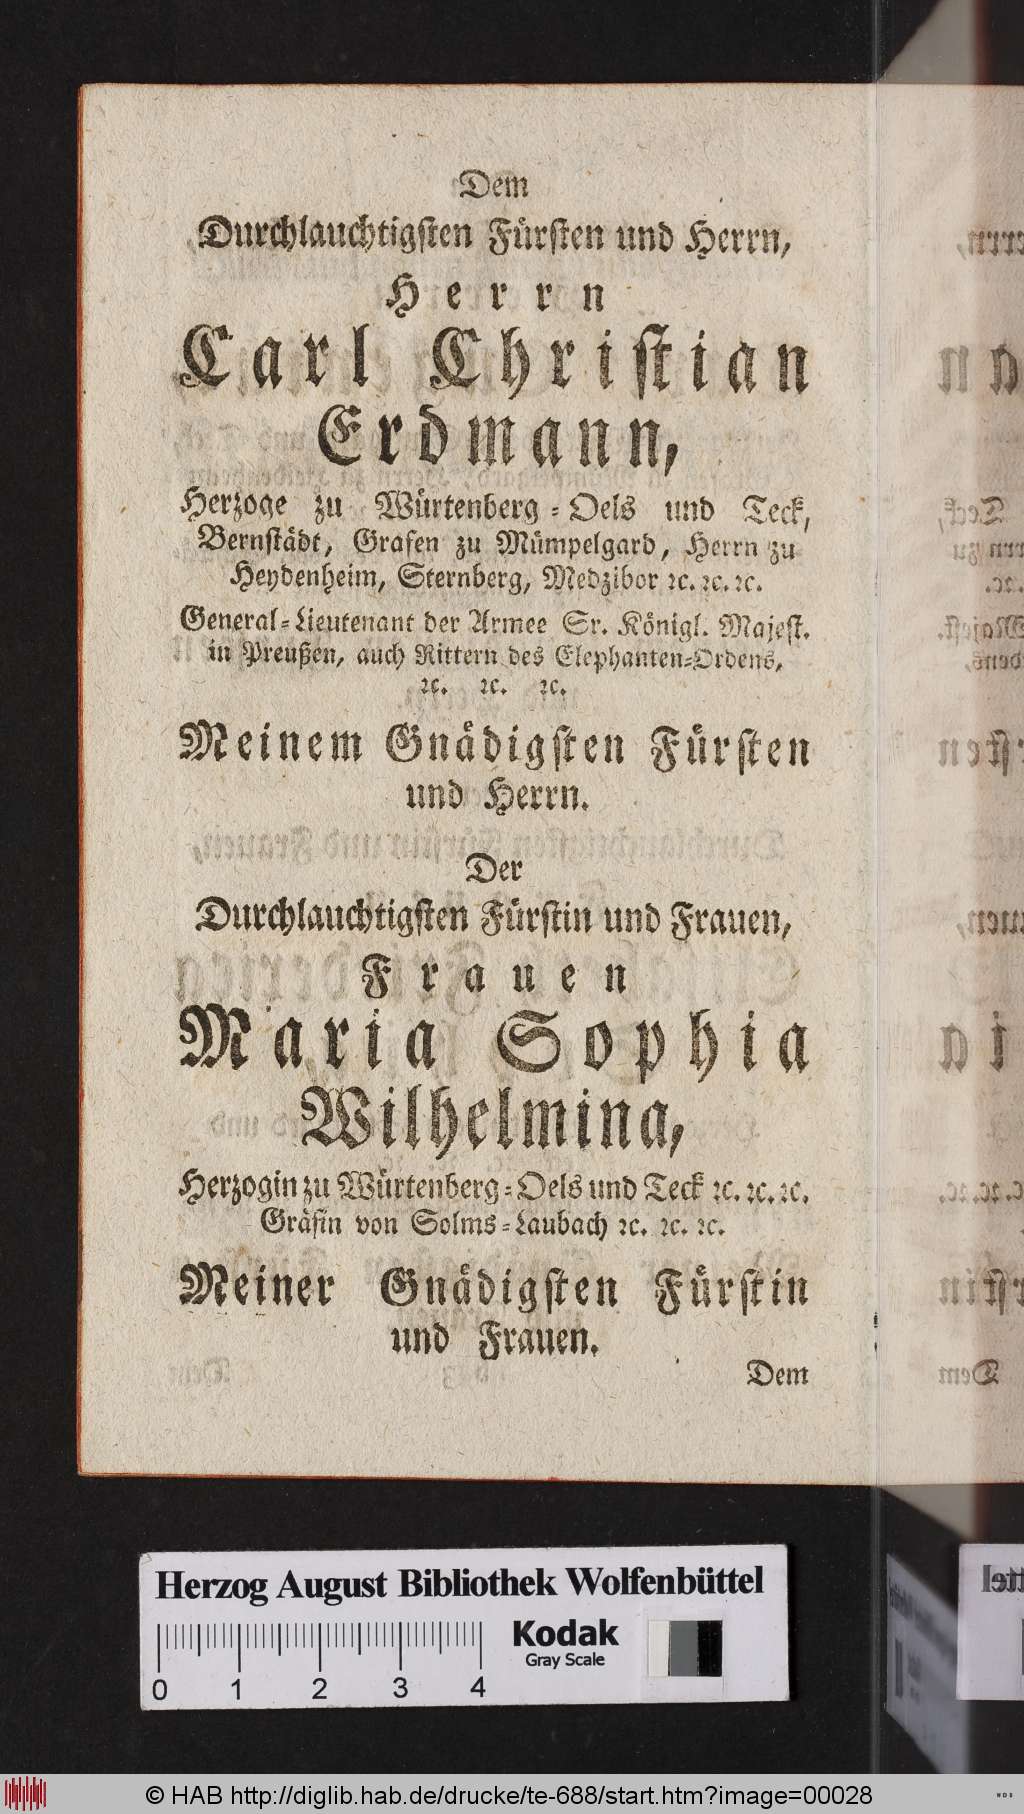 Dem
Durchlauchtigſten Fürſten und Herrn,
Herrn
Carl Chriſtian
Erdmann,
Herzoge zu Würtenberg-Oels und Teck,
Bernſtädt, Grafen zu Mümpelgard, Herrn zu
Heydenheim, Sternberg, Medzibor ꝛc. ꝛc. ꝛc.
General-Lieutenant der Armee Sr. Königl. Majeſt.
in Preußen, auch Rittern des Elephanten-Ordens,
ꝛc. ꝛc. ꝛc.
Meinem Gnädigſten Fürſten
und Herrn.
Der
Durchlauchtigſten Fürſtin und Frauen,
Frauen
Maria Sophia
Wilhelmina,
Herzogin zu Würtenberg-Oels und Teck ꝛc. ꝛc. ꝛc.
Gräfin von Solms-Laubach ꝛc. ꝛc. ꝛc.
Meiner Gnädigſten Fürſtin
und Frauen.
Dem
Herzog August Bibliothek Wolfenbüttel
Kodak
Gray Scale
0 1 2 3 4
© HAB http://diglib.hab.de/drucke/te-688/start.htm?image=00028